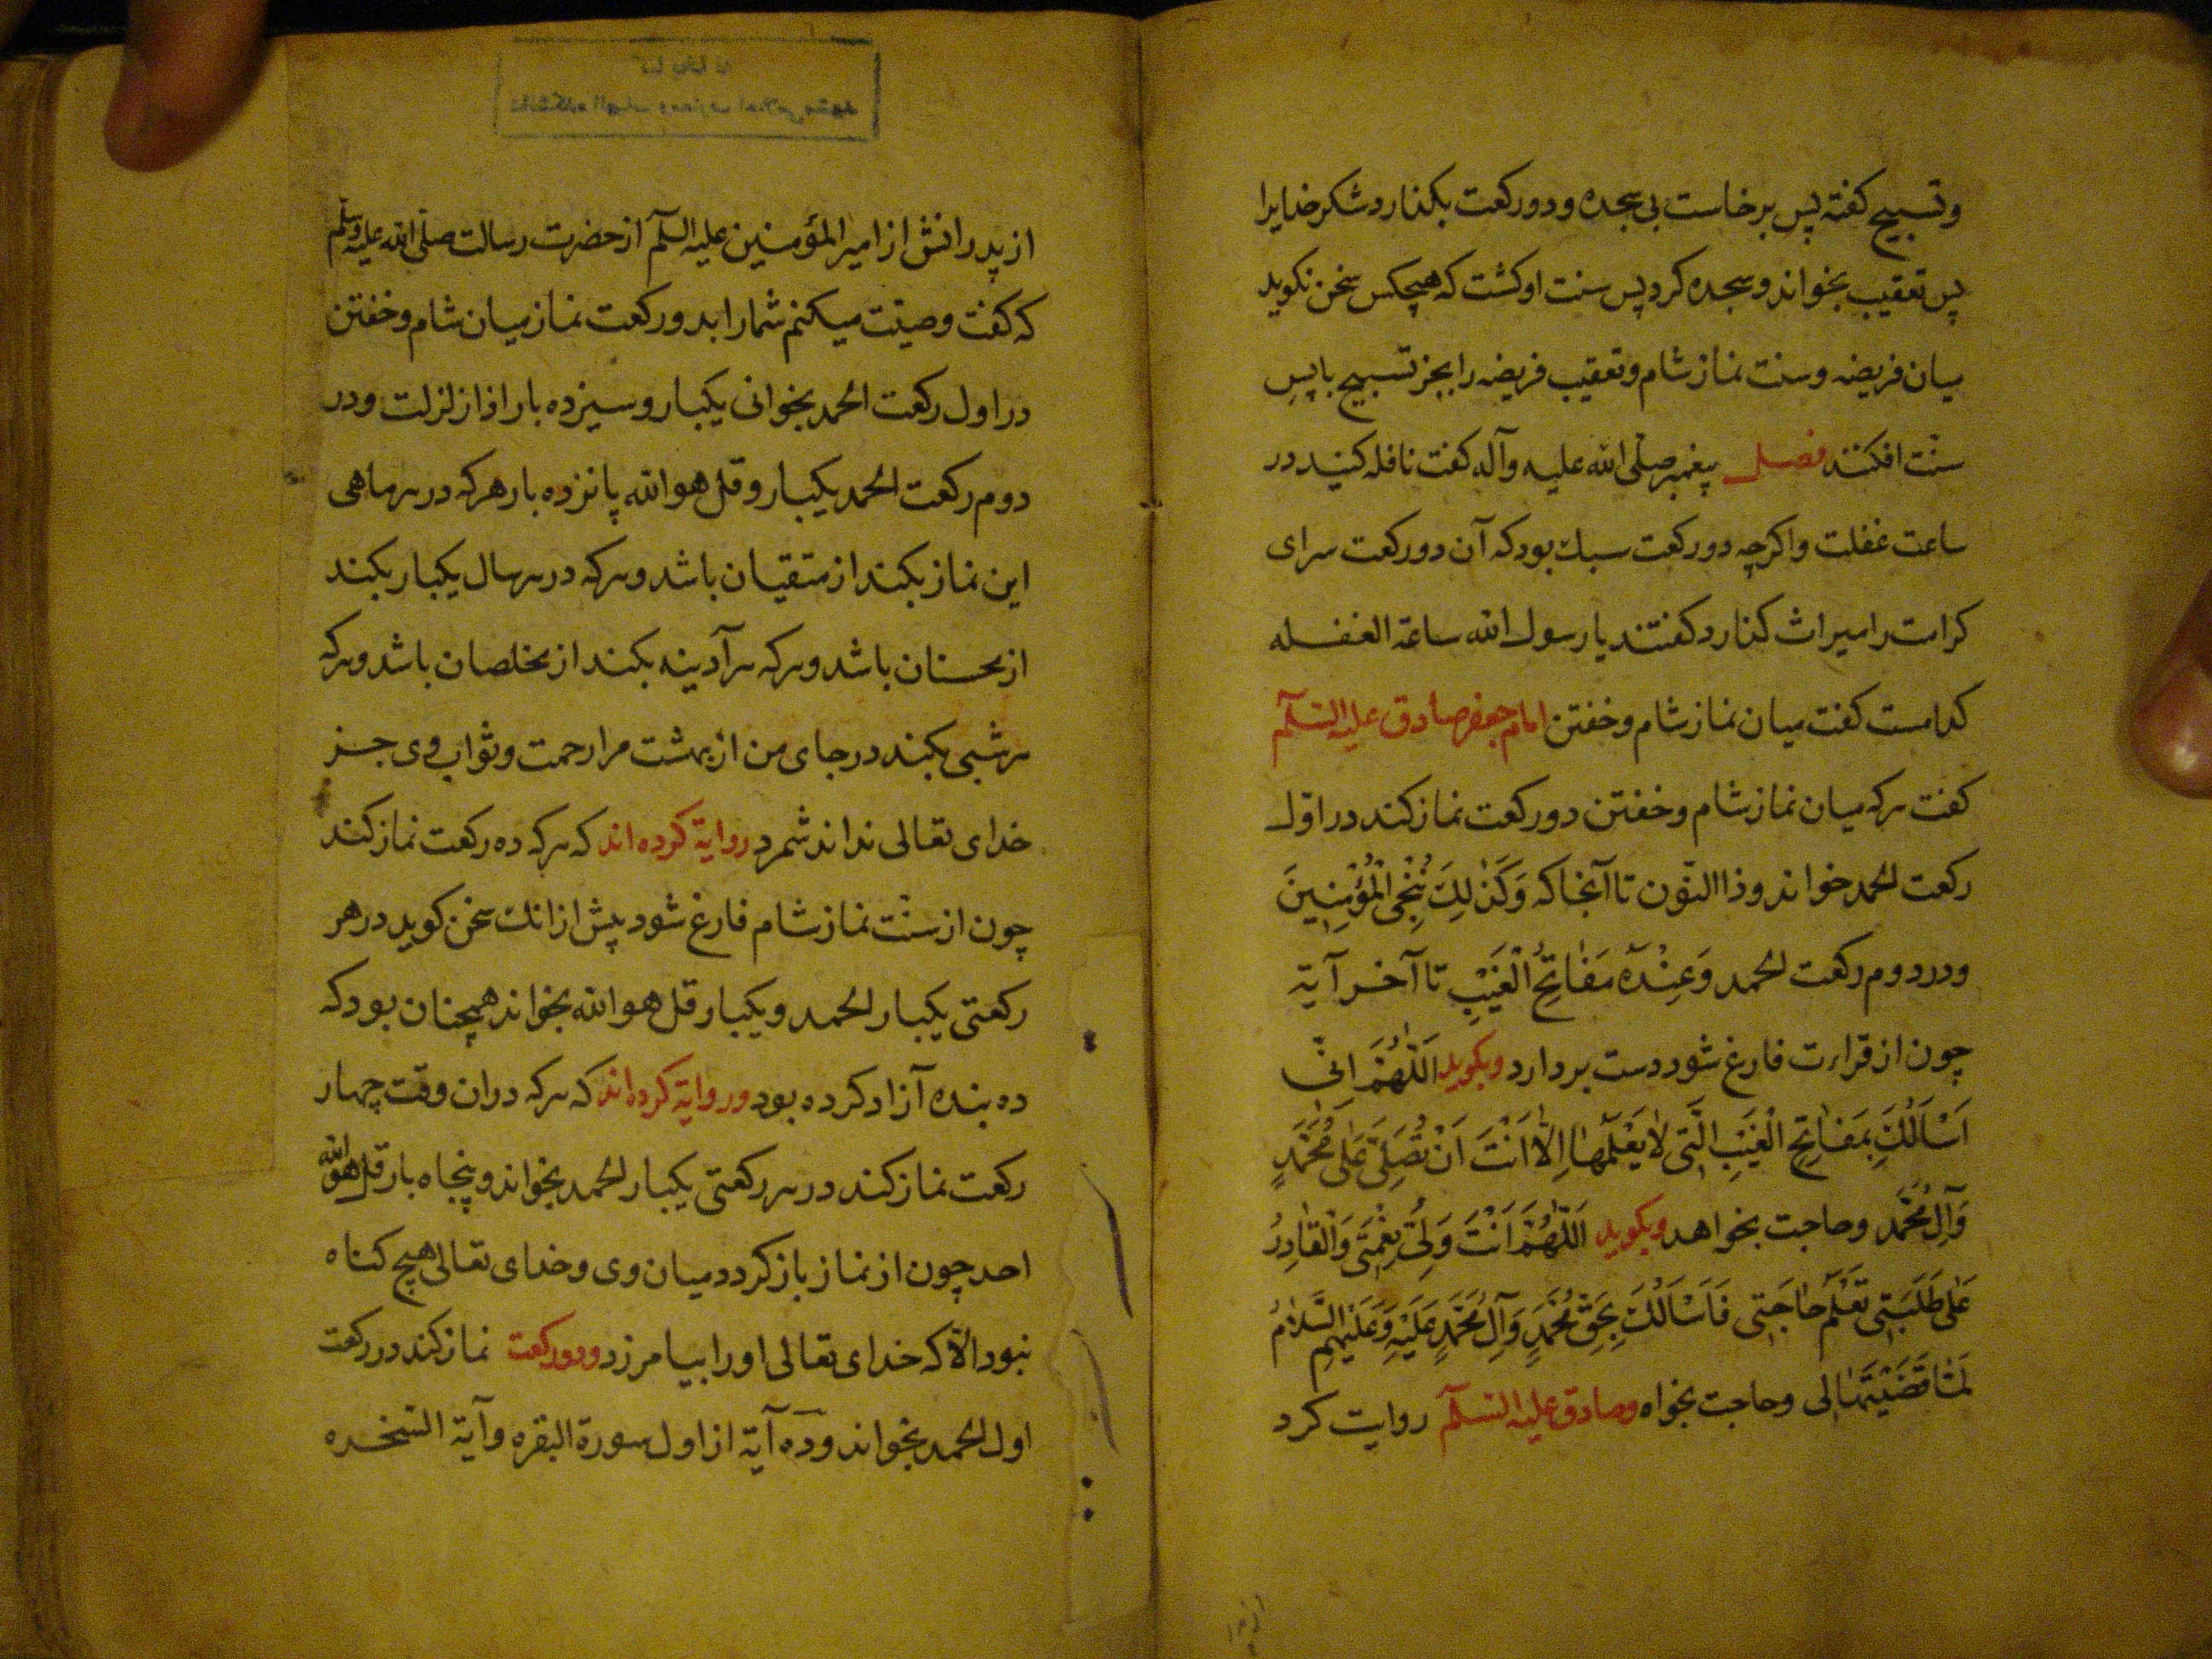 وتسبیح کفته پس برخاست بی سجده و دو رکعت بکذارد شکر خدایرا
پس تعقیب بخواند و سجده کرد پس سنت او کشت که هیچکس سخن نکوید
میان فریضه و سنت نماز شام و تعقیب فریضه را بجز تسبیح باپس
سنّت افکنند فصل پیغمبر صلّی الله علیه وآله کفت نافله کنید در
ساعت غفلت واکرچه دو رکعت سبك بود که آن دو رکعت سرای
کرامت را میراث کذارد کفتند یا رسول الله ساعة الغفله
کدامست کفت میان نماز شام و خفتن امام جعفر صادق علیه السّلم
کفت هرکه میان نماز شام و خفتن دو رکعت نماز کند در اوّل
رکعت الحمد خواند و ذا النّون تا آنجا که وَكَذٰلِكَ نُنْجِی الْمُؤْمِنِینَ
ودر دوم رکعت الحمد وَعِنْدَهُ مَفَاتِحُ الْغَیْبِ تا آخر آیة
چون از قراءت فارغ شود دست بردارد وبکوید اَللّٰهُمَّ اِنّی
اَسْاَلُكَ بِمَفَاتِحِ الْغَیْبِ الَّتی لٰا یَعْلَمُهٰا اِلّٰا اَنْتَ اَنْ تُصَلِّیَ عَلٰی مُحَمَّدٍ
وَآلِ مُحَمَّد وحاجت بخواهد وبکوید اَللّٰهُمَّ اَنْتَ وَلِیُّ نِعْمَتی وَالْقٰادِرُ
عَلٰی طَلِبَتی تَعْلَمُ حٰاجَتی فَاَسْاَلُكَ بِحَقِّ مُحَمَّدٍ وَآلِ مُحَمَّدٍ عَلَیْهِ وَعَلَیْهِمُ السَّلٰامُ
لَمّٰا قَضَیْتَهٰا لی وحاجت بخواه وصادق علیه السّلم روایت کرد
از پدرانش از امیر المؤمنین علیه السلم از حضرت رسالت صلّی الله علیه وسلّم
که کفت وصیّت میکنم شما را بدو رکعت نماز میان شام و خفتن
در اول رکعت الحمد بخوانی یکبار و سیزده بار اذا زلزلت ودر
دوم رکعت الحمد یکبار و قل هو الله پانزده بار هر که در هر ماهی
این نماز بکند از متقیان باشد و هرکه در هر سال یکبار بکند
از محسنان باشد و هرکه هر آدینه بکند از مخلصان باشد و هرکه
هر شبی بکند در جای من از بهشت مرا رحمت و ثواب وی جز
خدای تعالی نداند شمرد روایة کرده اند که هرکه ده رکعت نماز کند
چون از سنّت نماز شام فارغ شود پیش ازانك سخن کوید در هر
رکعتی یکبار الحمد و یکبار قل هو الله بخواند همچنان بود که
ده بنده آزاد کرده بود وروایة کرده اند که هرکه دران وقت چهار
رکعت نماز کند در هر رکعتی یکبار الحمد بخواند و پنجاه بار قل هو الله
احد چون از نماز باز کردد میان وی و خدای تعالی هیچ کناه
نبود الّا که خدای تعالی اورا بیامرزد ودو رکعت نماز کند در رکعت
اول الحمد بخواند و ده آیة از اول سورة البقره و آیة السخره